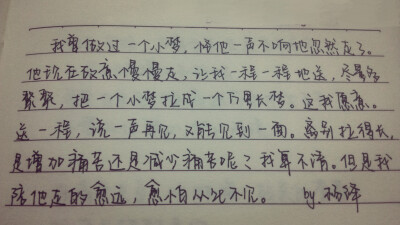 我曾做过一个小梦，怪他一声不响地忽然走了。
他现在故意慢慢走，让我一程一程地送，尽量多
聚聚，把一个小梦拉成一个万里长梦。这我愿意。
送一程，说一声再见，又能见到一面。离别拉得长，
是增加痛苦还是减少痛苦呢？我算不清。但是我
陪他走的愈远，愈怕从此不见。 by. 杨绛